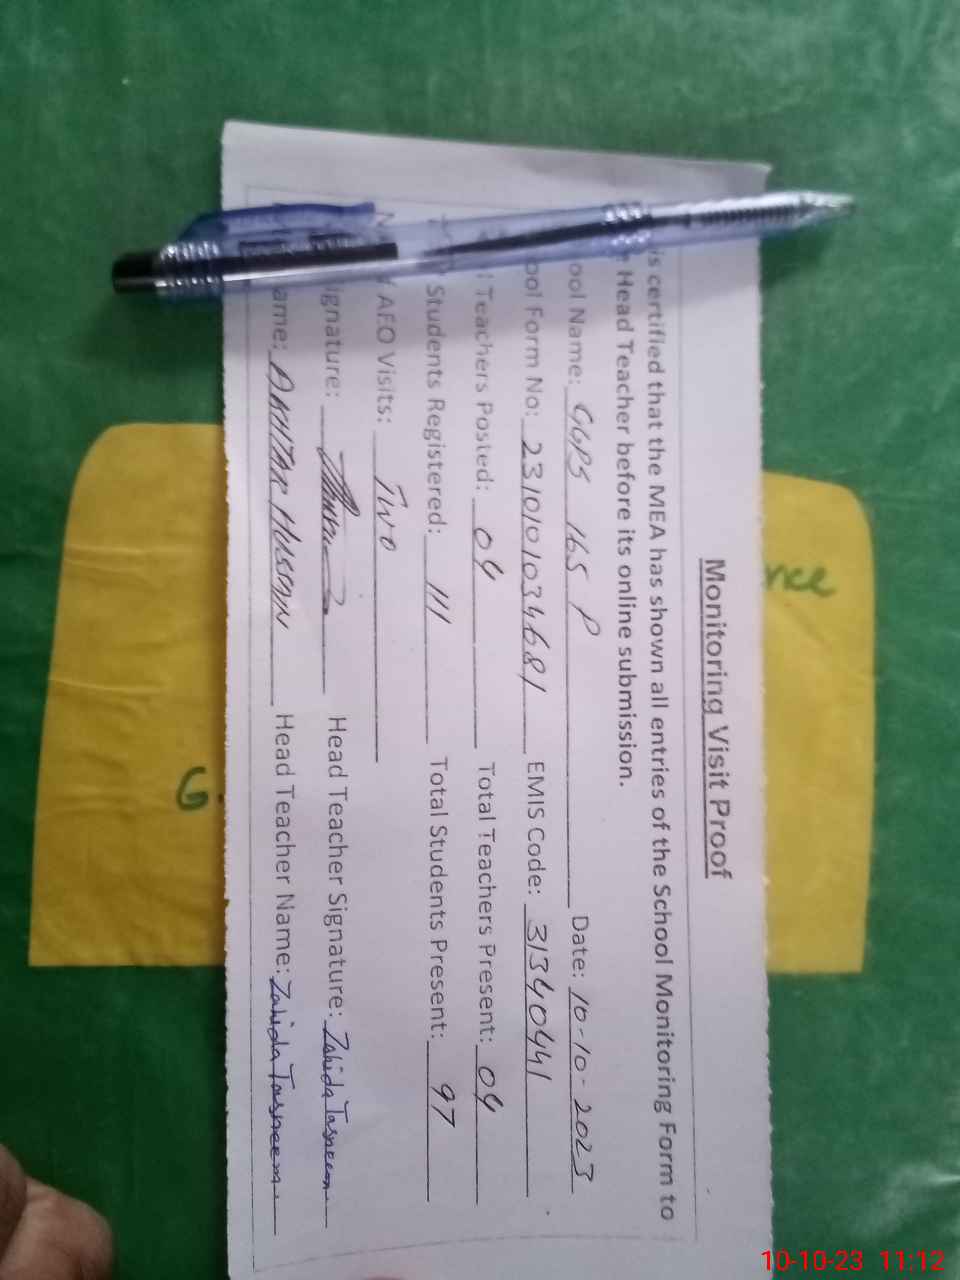 Monitoring Visit Proof
is certified that the MEA has shown all entries of the School Monitoring Form to
Head Teacher before its online submission.
ool Name: GGPS 165 P Date: 10-10-2023
ool Form No: 2310101034681 EMIS Code: 31340441
l Teachers Posted: 04 Total Teachers Present: 04
Students Registered: 111 Total Students Present: 97
AEO Visits: Two
ignature: Head Teacher Signature: Zahida Tasneem
ame: AKHTAR HUSSAIN Head Teacher Name: Zahida Tasneem
nce
G.
10-10-23 11:12